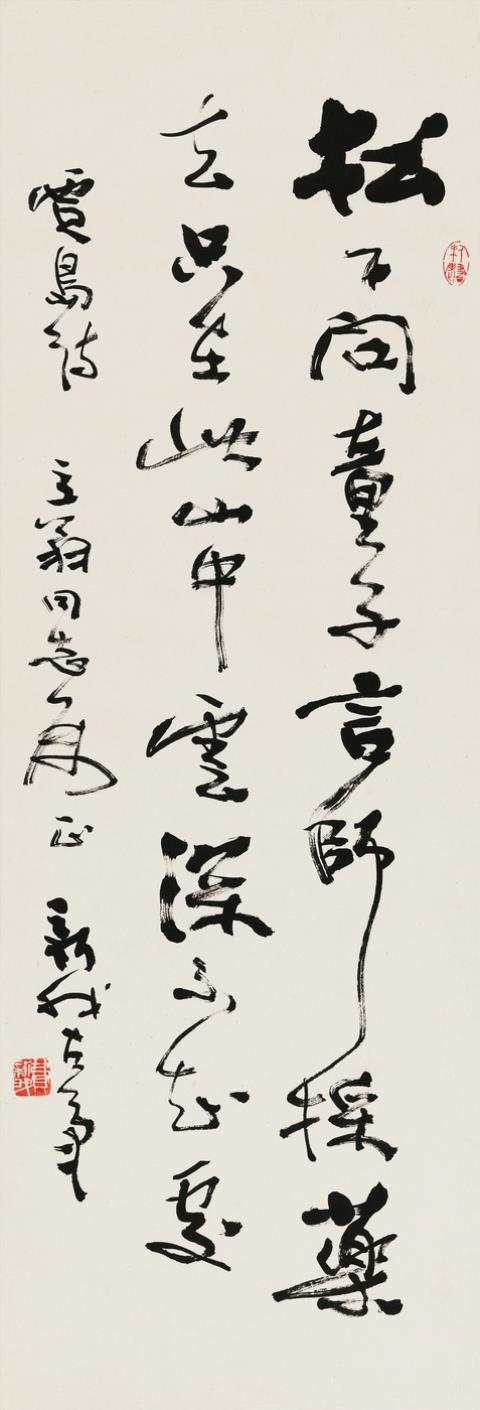 松下問童子言師採藥
去只在此山中雲深不知處
賈島詩 翁同志 正 新我左筆